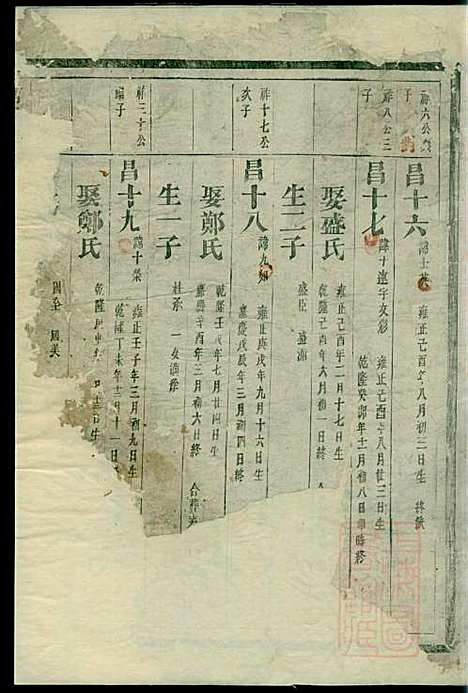 祥六公
子
昌十六
諱士英
雍正己酉年八月初三日生 終缺
祥八公三
子
昌十七
諱十遠字文彩
雍正己酉年八月廿三日生
乾隆癸卯年十二月初八日終
娶盛氏
雍正己酉年二月十七日生
乾隆己年六月初
生二子
盛臣 盛
祥十七公
次子
昌十八
諱九如
雍正庚戌年九月十六日生
嘉慶戊辰年三月初四日終
娶鄭氏
乾隆壬年七月廿四日生
嘉慶辛酉年三月初六日終
合葬
生一子
社
一女
祥三十公
子
昌十九
諱十榮
雍正壬子年三月初九日生
乾隆丁未年十二月十一日
娶鄭氏
乾隆
日生